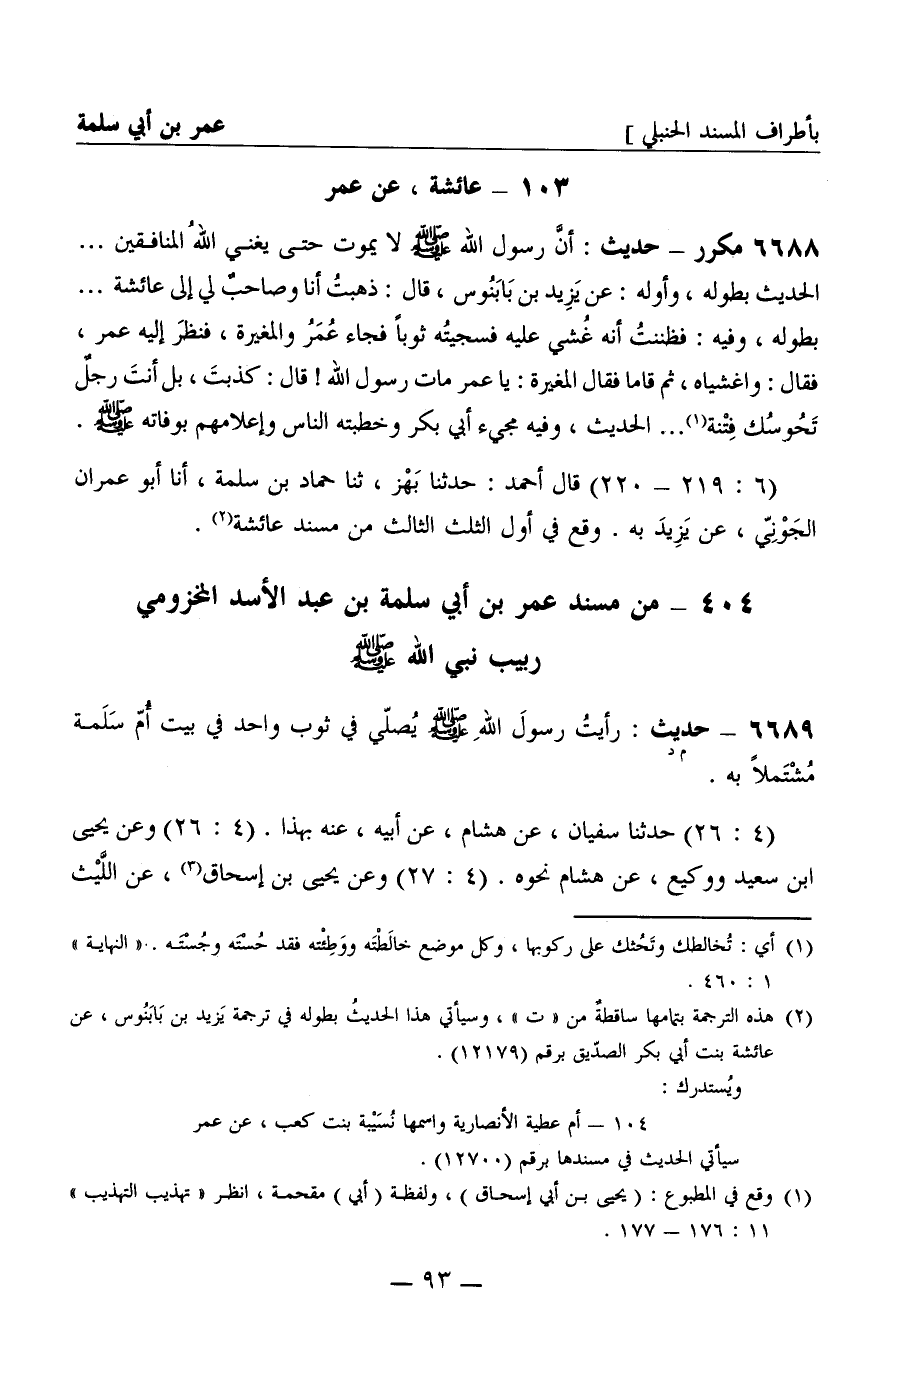 بأطراف المسند الحنبلي ] عمر بن أبي سلمة
١٠٣ – عائشة ، عن عمر
٦٦٨٨ مكرر – حديث : أنَّ رسول الله ﷺ لا يموت حتـى يغنـي اللهُ المنافـقين ...
الحديث بطوله ، وأوله : عن يَزِيد بن بَابَنُوس ، قال : ذهبتُ أنا وصاحبٌ لي إلى عائشة ...
بطوله ، وفيه : فظننتُ أنه غُشي عليه فسجيتُه ثوباً فجاء عُمَرُ والمغيرة ، فنظَرَ إليه عمر ،
فقال : واغشياه ، ثم قاما فقال المغيرة : يا عمر مات رسول الله ! قال : كذبتَ ، بل أنتَ رجلٌ
تَحُوسُك فِتْنة(١)... الحديث ، وفيه مجيء أبي بكر وخطبته الناس وإعلامهم بوفاته ﷺ .
(٦ : ٢١٩ – ٢٢٠) قال أحمد : حدثنا بَهْز ، ثنا حماد بن سلمة ، أنا أبو عمران
الجَوْنِيّ ، عن يَزِيدَ به . وقع في أول الثلث الثالث من مسند عائشة(٢) .
٤٠٤ – من مسند عمر بن أبي سلمة بن عبد الأسد المخزومي
ربيب نبي الله ﷺ
٦٦٨٩ – حديث : رأيتُ رسولَ اللهِ ﷺ يُصلّي في ثوب واحد في بيت أُمّ سَلَمـة
م د
مُشْتَملاً به .
(٤ : ٢٦) حدثنا سفيان ، عن هشام ، عن أبيه ، عنه بهذا . (٤ : ٢٦) وعن يحيى
ابن سعيد ووكيع ، عن هشام نحوه . (٤ : ٢٧) وعن يحيى بن إسحاق(٣) ، عن اللَّيْث
(١) أي : تُخالطك وتَحُثك على ركوبها ، وكل موضع خالَطْتَه ووَطِئْته فقد حُسْتَه وجُسْتَـه . « النهايـة »
١ : ٤٦٠ .
(٢) هذه الترجمة بتمامها ساقطةٌ من « ت » ، وسيأتي هذا الحديثُ بطوله في ترجمة يَزيد بن بَابَنُوس ، عن
عائشة بنت أبي بكر الصدّيق برقم (١٢١٧٩) .
ويُستدرك :
١٠٤ – أم عطية الأنصارية واسمها نُسَيْبة بنت كعب ، عن عمر
سيأتي الحديث في مسندها برقم (١٢٧٠٠) .
(١) وقع في المطبوع : ( يحيى بـن أبي إسحـاق ) ، ولفظـة ( أبي ) مقحمـة ، انظـر « تهذيب التهذيب »
١١ : ١٧٦ – ١٧٧ .
– ٩٣ –